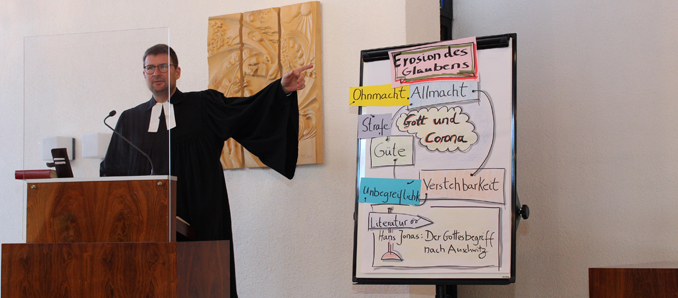 Erosion des
Glaubens
Ohnmacht Allmacht
Strafe
Gott und
Corona
Güte
Unbegreiflichk
Verstehbarkeit
Literatur
Hans Jonas: Der Gottesbegriff
nach Auschwitz